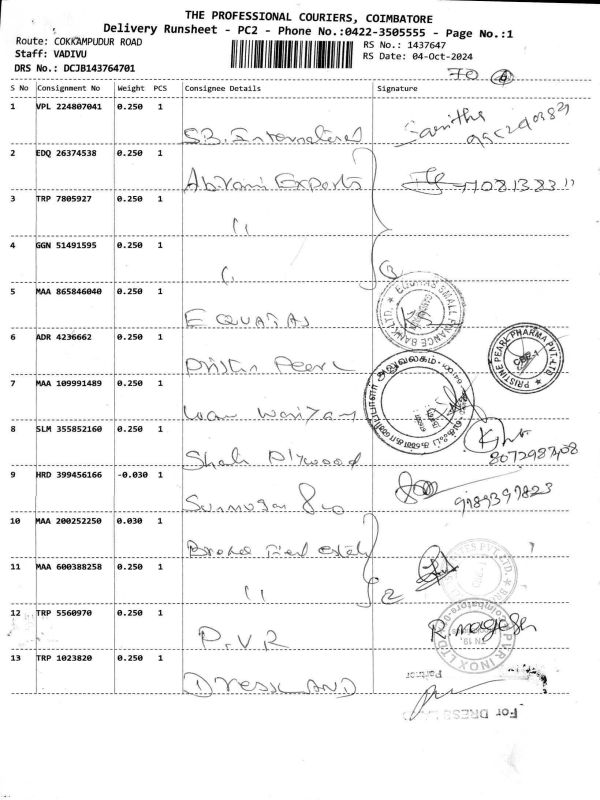 THE PROFESSIONAL COURIERS, COIMBATORE
Delivery Runsheet - PC2 - Phone No.:0422-3505555 - Page No.:1
Route: COKKAMPUDUR ROAD
Staff: VADIVU
DRS No.: DCJB143764701
RS No.: 1437647
RS Date: 04-Oct-2024
70
S No Consignment No Weight PCS Consignee Details Signature
1 VPL 224807041 0.250 1 S.B. International
2 EDQ 26374538 0.250 1 Abirami Exports
3 TRP 7805927 0.250 1 "
4 GGN 51491595 0.250 1 "
3
5 MAA 865846040 0.250 1 EQUATAS
EQUITAS SMALL FINANCE BANK LTD.
6 ADR 4236662 0.250 1 Pristin Pearl
PRISTINE PEARL PHARMA PVT.LTD
7 MAA 109991489 0.250 1
8 SLM 355852160 0.250 1 Shah Plywood
8072987408
9 HRD 399456166 -0.030 1
9789397823
10 MAA 200252250 0.030 1
11 MAA 600388258 0.250 1 "
2
12 TRP 5560970 0.250 1 P.V.R
R. nagesh
PVR INOX LTD
Coimbatore
13 TRP 1023820 0.250 1 DRESSLAND
Partner
For DRESS